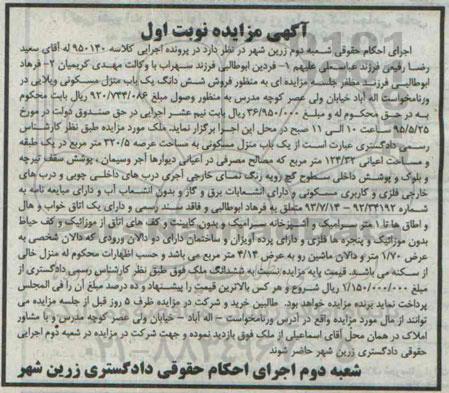 آگهی مزایده نوبت اول
اجرای احکام حقوقی شعبه دوم زرین شهر در نظر دارد در پرونده اجرایی کلاسه ۹۵۰۱۳۰ له آقای سعید
رضا رفیعی فرزند عباسعلی علیهم ۱- فردین ابوطالبی فرزند سهراب با وکالت مهدی کریمیان ۲- فرهاد
ابوطالبی فرزند مظفر جلسه مزایده ای به منظور فروش شش دانگ یک باب منزل مسکونی ویلایی در
ورنامخواست اله آباد خیابان ولی عصر کوچه مدرس به منظور وصول مبلغ ۹۲۰/۷۳۴/۰۸۶ ریال بابت محکوم
به در حق محکوم له و مبلغ ۳۶/۹۵۰/۰۰۰ ریال بابت نیم عشر اجرایی در حق صندوق دولت در مورخ
۹۵/۵/۲۵ ساعت ۱۰ الی ۱۱ صبح در محل این اجرا برگزار نماید. ملک مورد مزایده طبق نظر کارشناس
رسمی دادگستری عبارت است از یک باب منزل مسکونی به مساحت عرصه ۳۲۰/۵ متر مربع در یک طبقه
و مساحت اعیانی ۱۲۴/۳۲ متر مربع که مصالح مصرفی در اعیانی دیوارها آجر وسیمان ، پوشش سقف تیرچه
و بلوک و پوشش داخلی سطوح گچ رویه رنگ نمای خارجی آجری درب های داخلی چوبی و درب های
خارجی فلزی و کاربری مسکونی و دارای انشعابات برق و گاز و بدون انشعاب آب و دارای مبایعه نامه به
شماره ۹۲/۳۴۱۹۲ - ۹۳/۷/۱۴ متعلق به فرهاد ابوطالبی و فاقد سند رسمی و دارای یک اتاق خواب و هال
و اطاق ها تا ۱ متر سرامیک و آشپزخانه سرامیک و بدون کابینت و کف های اتاق از موزائیک و کف حیاط
بدون موزائیک و پنجره ها فلزی و دارای پرده آویزان و ساختمان دارای دو دالان ورودی که دالان شخصی به
عرض ۱/۷۰ متر و دالان ماشین رو به عرض ۴/۱۴ متر مربع می باشد و حسب اظهارات محکوم له منزل خالی
از سکنه می باشد. قیمت پایه مزایده نسبت به ششدانگ ملک فوق طبق نظر کارشناس رسمی دادگستری از
مبلغ ۱/۱۵۰/۰۰۰/۰۰۰ ریال شروع و هر کس بالاترین قیمت را پیشنهاد و ده درصد مبلغ آن را فی المجلس
پرداخت نماید برنده مزایده خواهد بود. طالبین خرید و شرکت در مزایده ظرف ۵ روز قبل از جلسه مزایده می
توانند از مال مورد مزایده واقع در آدرس ورنامخواست - اله آباد - خیابان ولی عصر کوچه مدرس و با مشاور
املاک در همان محل آقای اسماعیلی از ملک فوق بازدید نموده و جهت شرکت در مزایده در شعبه دوم اجرایی
حقوقی دادگستری زرین شهر حاضر شوند
شعبه دوم اجرای احکام حقوقی دادگستری زرین شهر